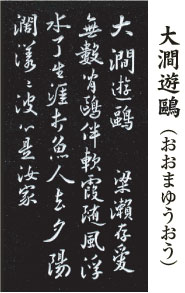 大澗遊鷗（おおまゆうおう）
大澗遊鷗　梁瀬存愛
無數閑鷗伴軟霞隨風浮
水了生涯打魚人去夕陽
濶漾々波心是汝家